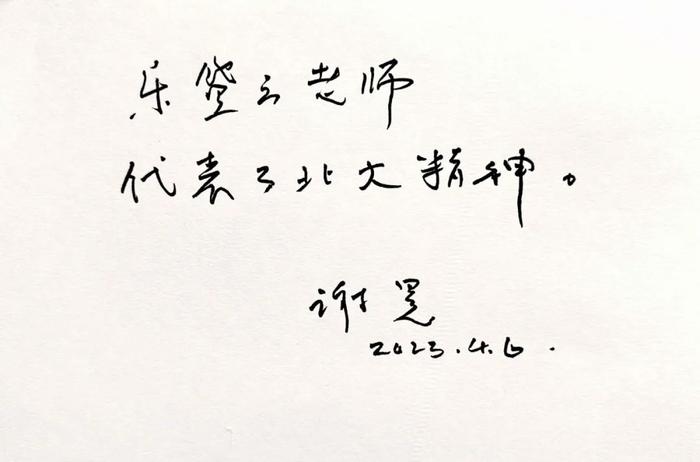 乐黛云老师
代表了北大精神。
谢冕
2023.4.6.